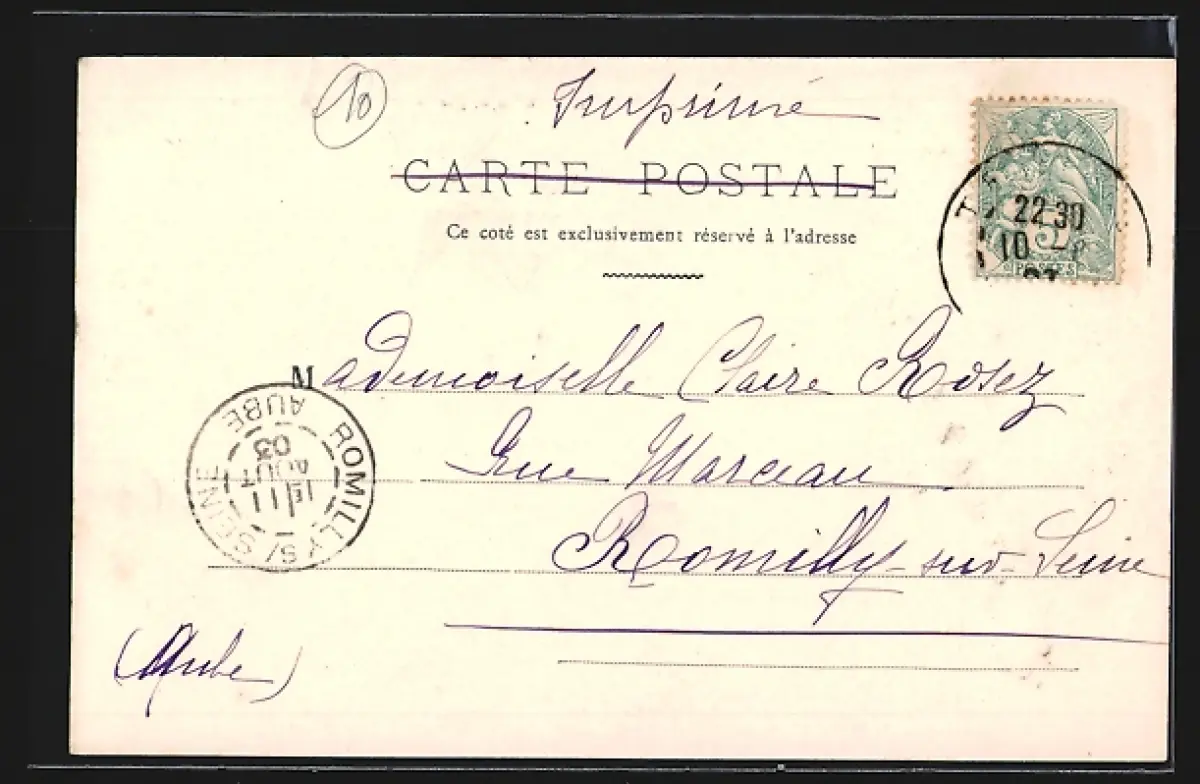 10
Imprimé
CARTE POSTALE
Ce coté est exclusivement réservé à l'adresse
22 30
10
5
POSTES
Mademoiselle Claire Rosez
Rue Marceau
Romilly-sur-Seine
(Aube)
ROMILLY S/ SEINE
AUBE
1E 11
AOUT
03